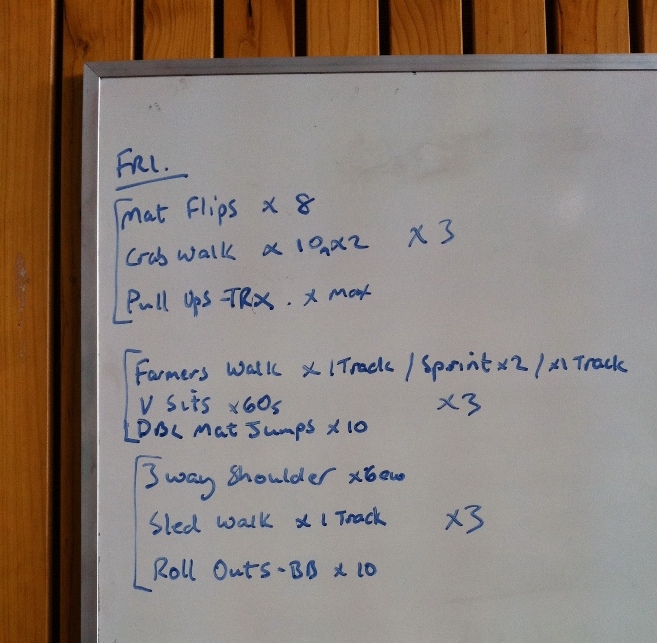 FRI.
Mat Flips x 8
Crab Walk x 10m x2 x 3
Pull Ups - TRX . x Max
Farmers Walk x 1 Track / Sprint x 2 / x1 Track
V Sits x 60s x3
DBL Mat Jumps x 10
3 way Shoulder x 6 ew
Sled Walk x 1 Track x3
Roll Outs - BB x 10